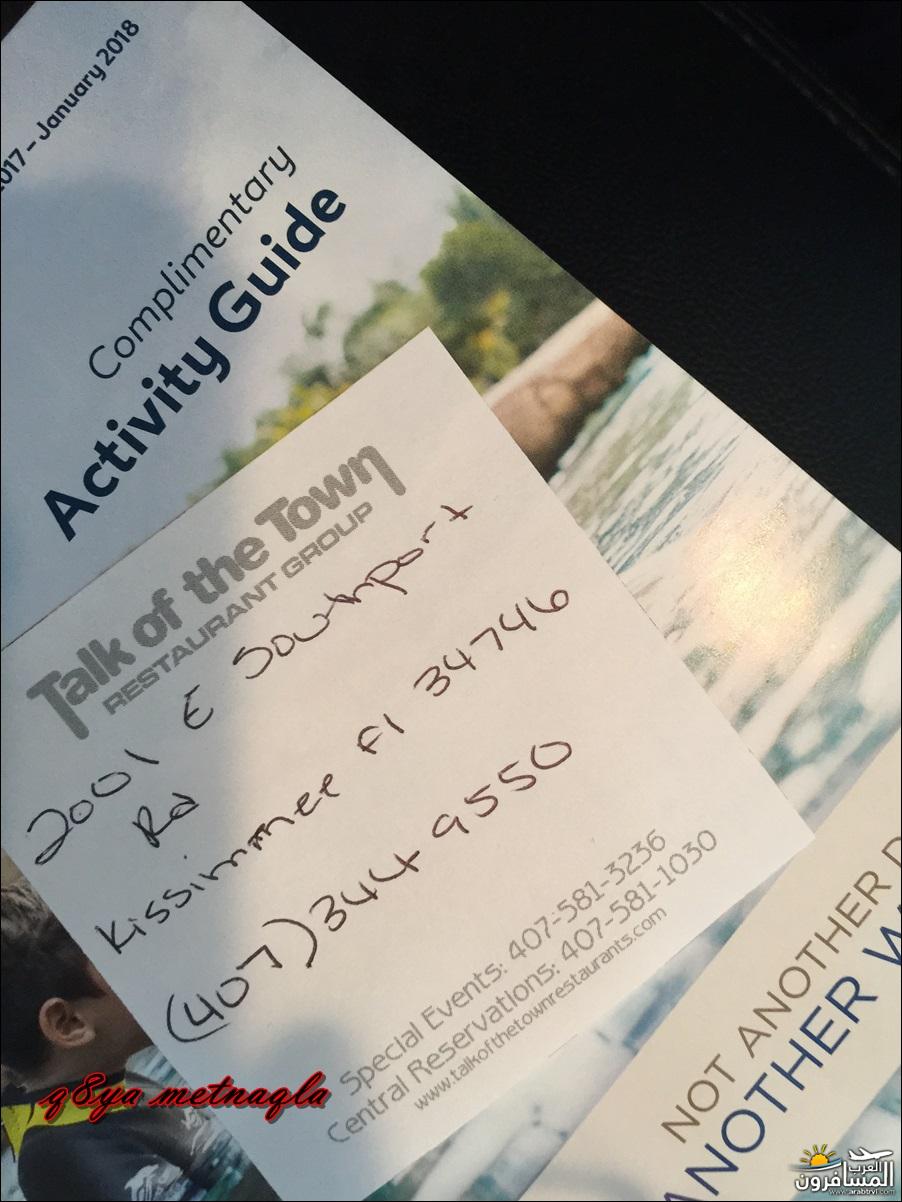 2017 – January 2018
Complimentary
Activity Guide
Talk of the Town
RESTAURANT GROUP
2001 E Southport
Rd
Kissimmee Fl 34746
(407) 344 9550
Special Events: 407-581-3236
Central Reservations: 407-581-1030
www.talkofthetownrestaurants.com
NOT ANOTHER
ANOTHER
q8ya metnaqla
العرب
المسافرون
www.arabtrvl.com